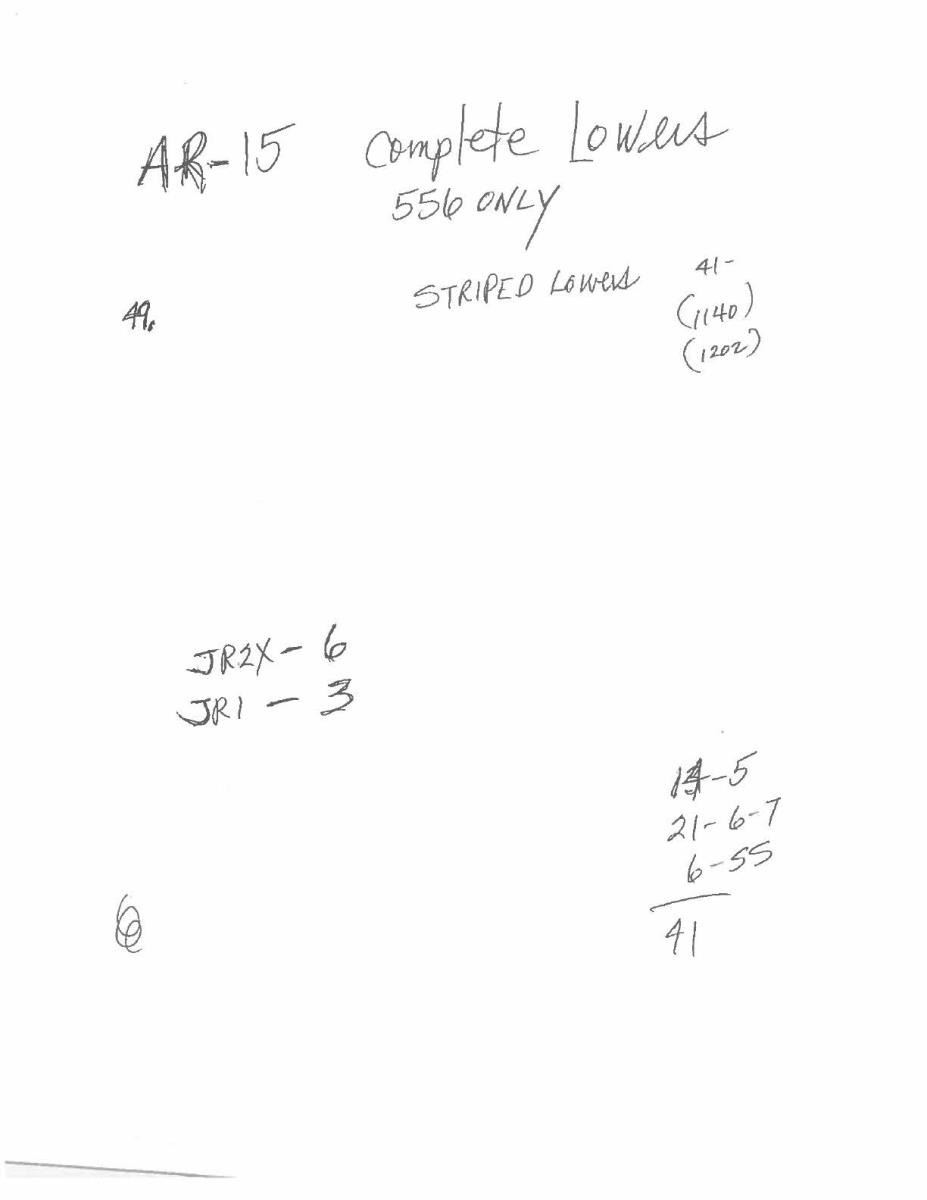 AR-15 Complete Lowers
556 ONLY
STRIPED Lowers 41-
49.
(1140)
(1202)
JR2X - 6
JR1 - 3
14-5
21-6-7
6-55
41